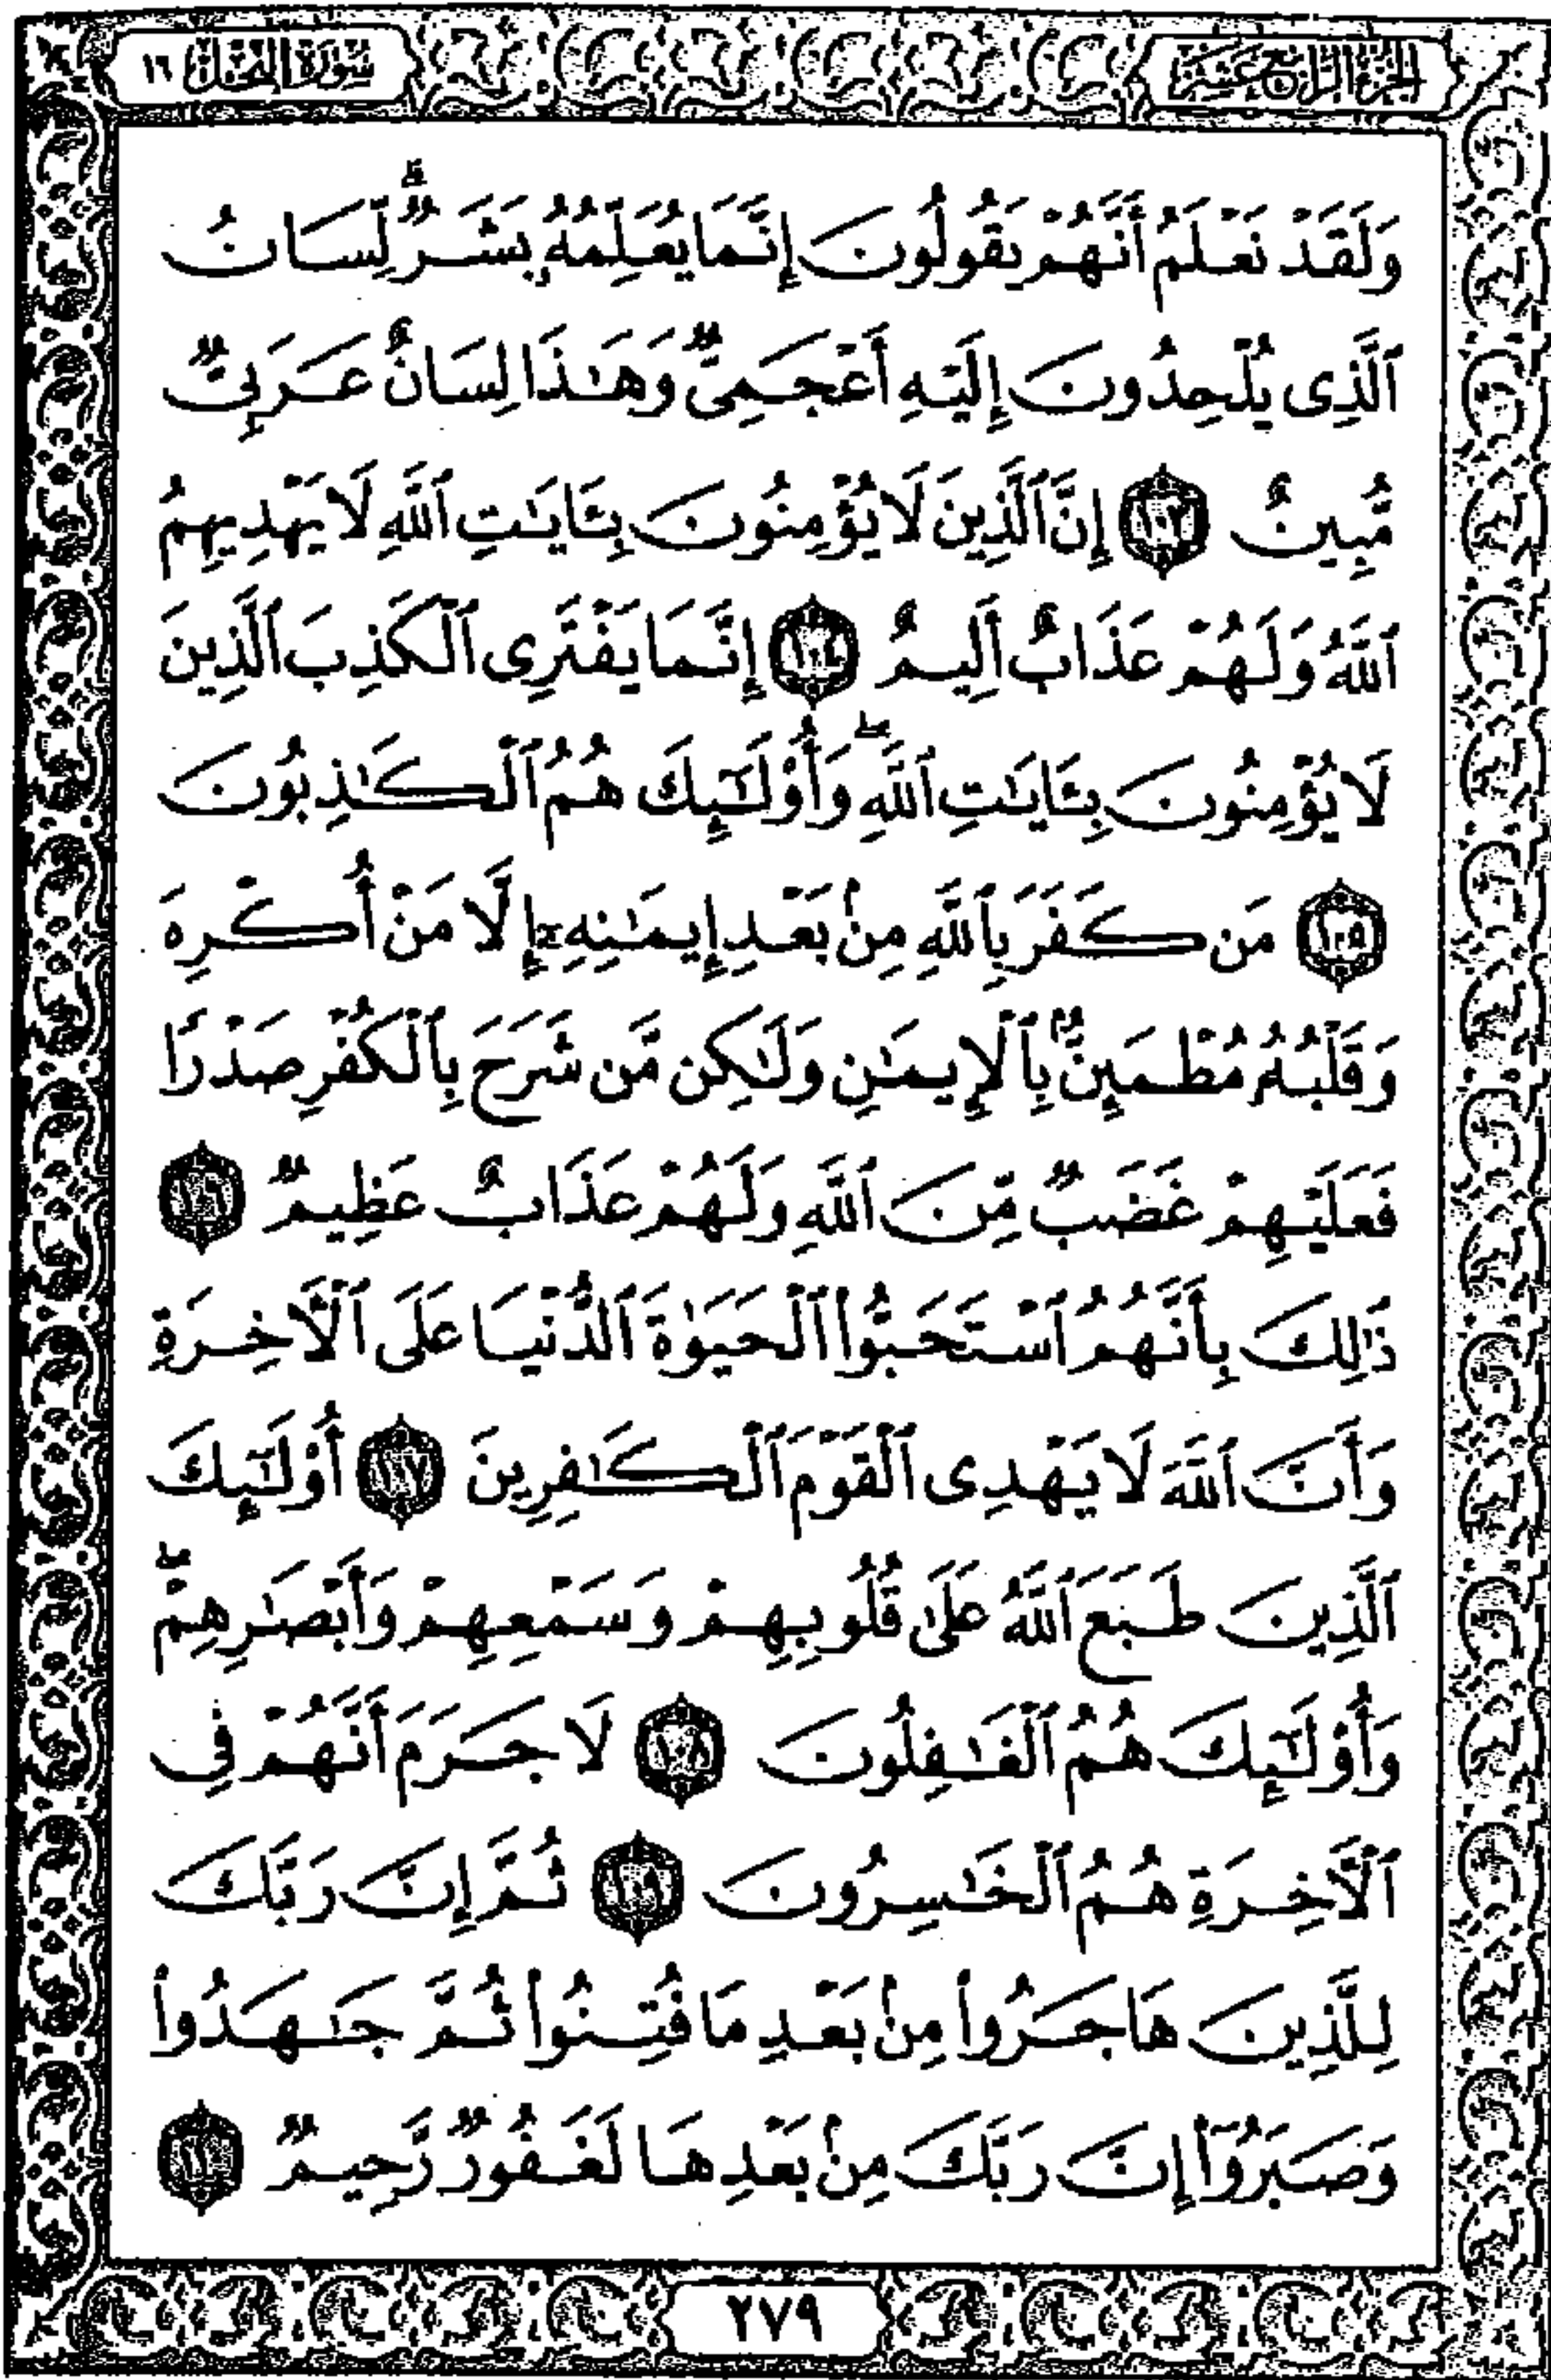 الجزء الرابع عشر
سورة النحل ١٦
وَلَقَدْ نَعْلَمُ أَنَّهُمْ يَقُولُونَ إِنَّمَا يُعَلِّمُهُۥ بَشَرٌۗ لِّسَانُ
ٱلَّذِى يُلْحِدُونَ إِلَيْهِ أَعْجَمِىٌّ وَهَـٰذَا لِسَانٌ عَرَبِىٌّ
مُّبِينٌ ١٠٣ إِنَّ ٱلَّذِينَ لَا يُؤْمِنُونَ بِـَٔايَـٰتِ ٱللَّهِ لَا يَهْدِيهِمُ
ٱللَّهُ وَلَهُمْ عَذَابٌ أَلِيمٌ ١٠٤ إِنَّمَا يَفْتَرِى ٱلْكَذِبَ ٱلَّذِينَ
لَا يُؤْمِنُونَ بِـَٔايَـٰتِ ٱللَّهِۖ وَأُو۟لَـٰٓئِكَ هُمُ ٱلْكَـٰذِبُونَ
١٠٥ مَن كَفَرَ بِٱللَّهِ مِنۢ بَعْدِ إِيمَـٰنِهِۦٓ إِلَّا مَنْ أُكْرِهَ
وَقَلْبُهُۥ مُطْمَئِنٌّۢ بِٱلْإِيمَـٰنِ وَلَـٰكِن مَّن شَرَحَ بِٱلْكُفْرِ صَدْرًا
فَعَلَيْهِمْ غَضَبٌ مِّنَ ٱللَّهِ وَلَهُمْ عَذَابٌ عَظِيمٌ ١٠٦
ذَٰلِكَ بِأَنَّهُمُ ٱسْتَحَبُّوا۟ ٱلْحَيَوٰةَ ٱلدُّنْيَا عَلَى ٱلْـَٔاخِرَةِ
وَأَنَّ ٱللَّهَ لَا يَهْدِى ٱلْقَوْمَ ٱلْكَـٰفِرِينَ ١٠٧ أُو۟لَـٰٓئِكَ
ٱلَّذِينَ طَبَعَ ٱللَّهُ عَلَىٰ قُلُوبِهِمْ وَسَمْعِهِمْ وَأَبْصَـٰرِهِمْۖ
وَأُو۟لَـٰٓئِكَ هُمُ ٱلْغَـٰفِلُونَ ١٠٨ لَا جَرَمَ أَنَّهُمْ فِى
ٱلْـَٔاخِرَةِ هُمُ ٱلْخَـٰسِرُونَ ١٠٩ ثُمَّ إِنَّ رَبَّكَ
لِلَّذِينَ هَاجَرُوا۟ مِنۢ بَعْدِ مَا فُتِنُوا۟ ثُمَّ جَـٰهَدُوا۟
وَصَبَرُوٓا۟ إِنَّ رَبَّكَ مِنۢ بَعْدِهَا لَغَفُورٌ رَّحِيمٌ ١١٠
٢٧٩